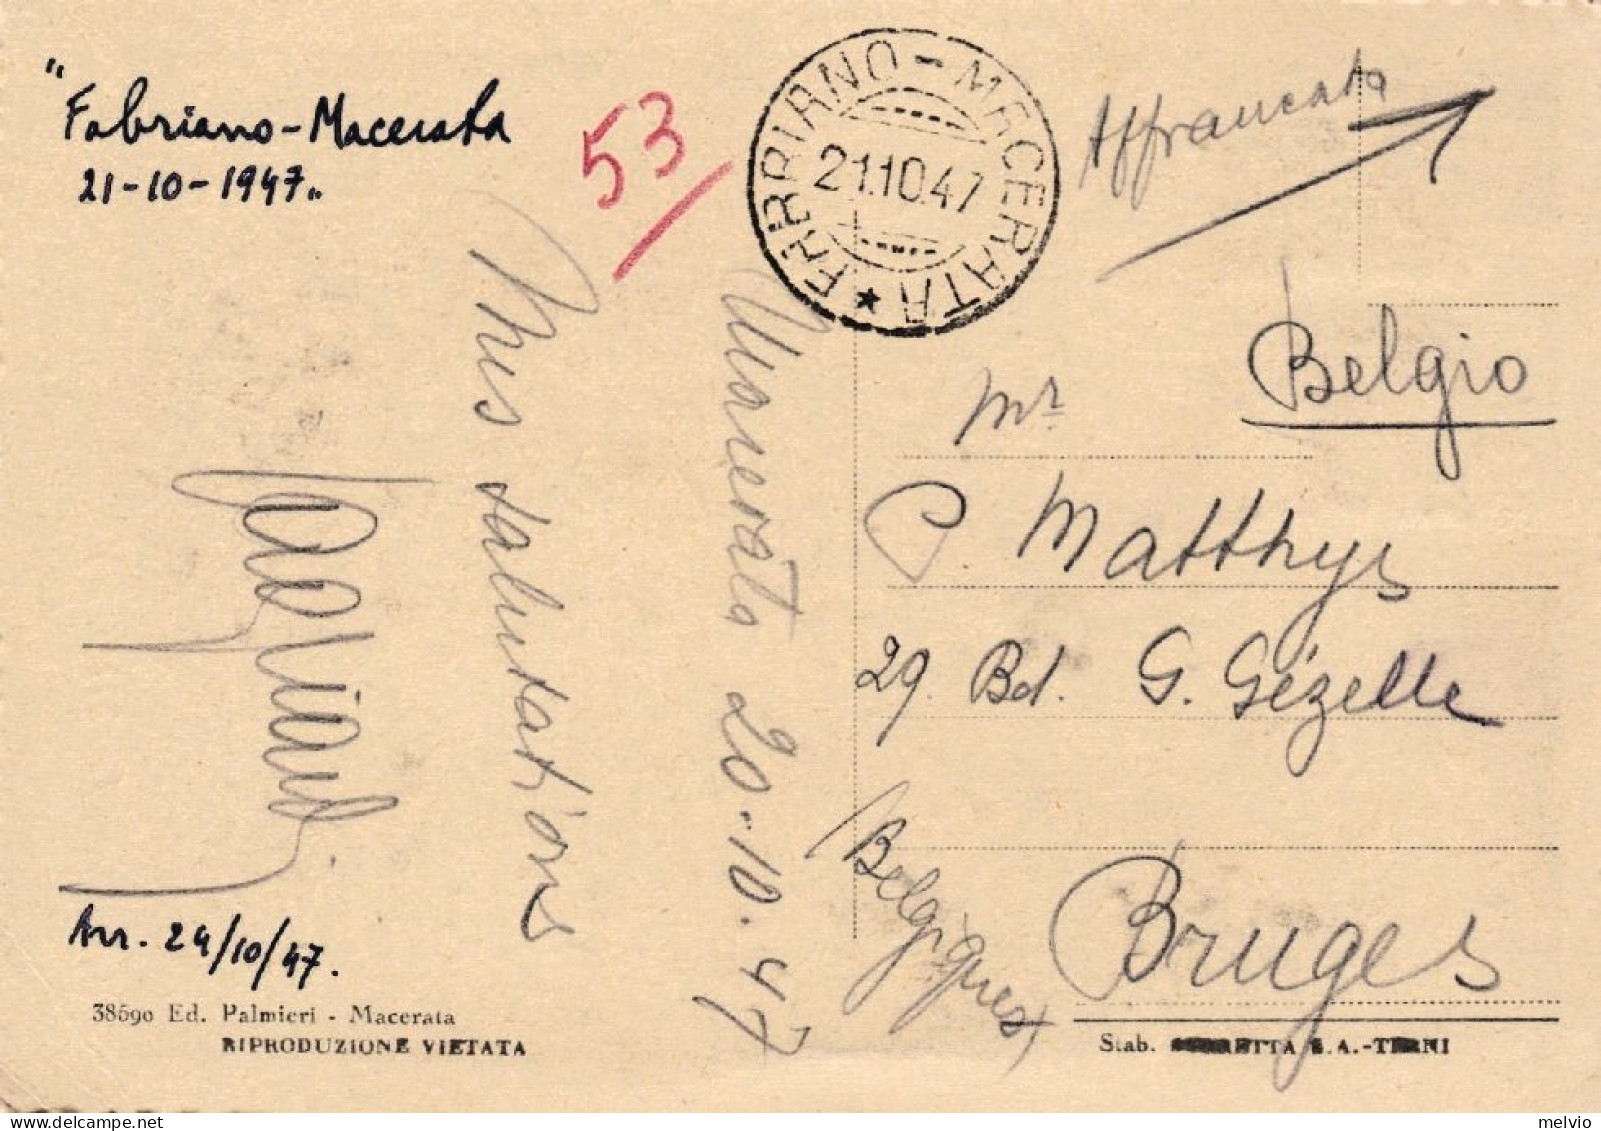 "Fabriano - Macerata
21-10-1947"
53
FABRIANO - MACERATA
21.10.47
Affrancata
Belgio
Mr
P. Matthys
29. Bd. G. Gézelle
Bruges
(Belgique)
Macerata 20-10.47
salutations
Arr. 24/10/47.
38690 Ed. Palmieri - Macerata
RIPRODUZIONE VIETATA
Stab. S.A.-TERNI
melvio